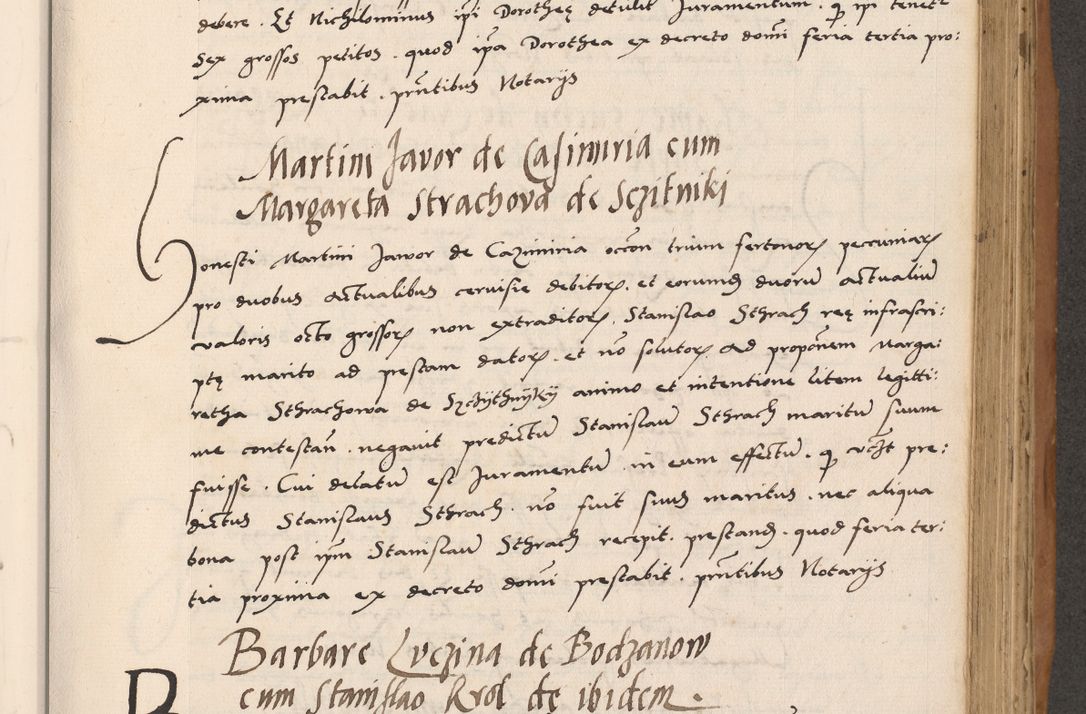 debere . Et Nichilominus ipi Dorotheę detulit Juramentum . qͥ ipi tenetr
sex grossos petitos . quod ipa Dorothea ex decreto domi feria tertia pro:
xima prestabit . pntibus Notarijs
Martini Javor de Casimiria cum
Margareta Strachova de Sczitniki
Honesti Martini Jawor de Cazimiria occon trium fertonorum pecuniarum
pro duobus actualibus cervisie debitorum . et eorumd duorum actualium
valoris octo grossorum non extraditorum . Stanislao Sthrach reę infrascri:
ptę marito ad prestam datorum . et no solutorum . ad proponem Marga:
retha Sthrachowa de Sczythnyky animo et intentione litem legitti:
me contestan . negavit predictum Stanislaum Sthrach maritum suum
fuisse . Cui delatum est Juramentum in eum effectum . qͥ vczt pre:
dictus Stanislaus Sthrach . no fuit suus maritus . nec aliqua
bona post ipm Stanislaum Sthrach recepit . prestand . quod feria ter:
tia proxima ex decreto domi prestabit . pntibus Notarijs
Barbare Luczina de Bodzanow
cum Stanislao Krol de ibidem .
B